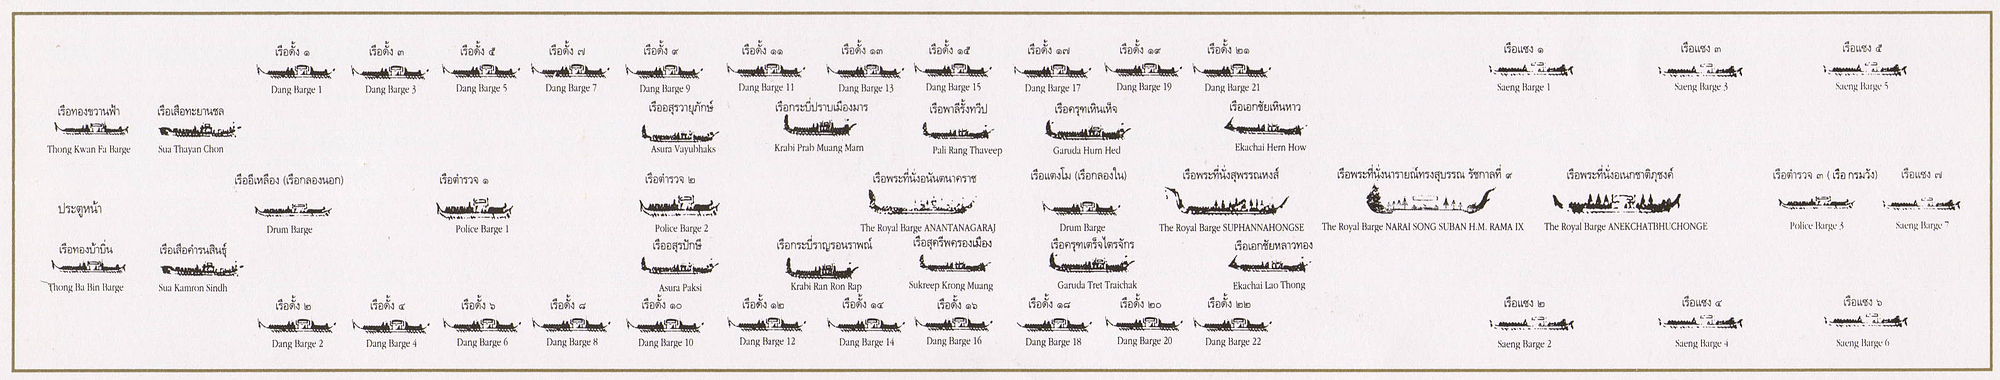 เรือดั้ง ๑ เรือดั้ง ๓ เรือดั้ง ๕ เรือดั้ง ๗ เรือดั้ง ๙ เรือดั้ง ๑๑ เรือดั้ง ๑๓ เรือดั้ง ๑๕ เรือดั้ง ๑๗ เรือดั้ง ๑๙ เรือดั้ง ๒๑ เรือแซง ๑ เรือแซง ๓ เรือแซง ๕
Dang Barge 1 Dang Barge 3 Dang Barge 5 Dang Barge 7 Dang Barge 9 Dang Barge 11 Dang Barge 13 Dang Barge 15 Dang Barge 17 Dang Barge 19 Dang Barge 21 Saeng Barge 1 Saeng Barge 3 Saeng Barge 5
เรือทองขวานฟ้า เรือเสือทะยานชล เรืออสุรวายุภักษ์ เรือกระบี่ปราบเมืองมาร เรือพาลีรั้งทวีป เรือครุฑเหินเห็จ เรือเอกชัยเหินหาว
Thong Kwan Fa Barge Sua Thayan Chon Asura Vayubhaks Krabi Prab Muang Marn Pali Rang Thaveep Garuda Hurn Hed Ekachai Hern How
เรืออีเหลือง (เรือกลองนอก) เรือตำรวจ ๑ เรือตำรวจ ๒ เรือพระที่นั่งอนันตนาคราช เรือแตงโม (เรือกลองใน) เรือพระที่นั่งสุพรรณหงส์ เรือพระที่นั่งนารายณ์ทรงสุบรรณ รัชกาลที่ ๙ เรือพระที่นั่งอเนกชาติภุชงค์ เรือตำรวจ ๓ ( เรือ กรมวัง) เรือแซง ๗
ประตูหน้า
Drum Barge Police Barge 1 Police Barge 2 The Royal Barge ANANTANAGARAJ Drum Barge The Royal Barge SUPHANNAHONGSE The Royal Barge NARAI SONG SUBAN H.M. RAMA IX The Royal Barge ANEKCHATBHUCHONGE Police Barge 3 Saeng Barge 7
เรือทองบ้าบิ่น เรือเสือคำรนสินธุ์ เรืออสุรปักษี เรือกระบี่ราญรอนราพณ์ เรือสุครีพครองเมือง เรือครุฑเตร็จไตรจักร เรือเอกชัยหลาวทอง
Thong Ba Bin Barge Sua Kamron Sindh Asura Paksi Krabi Ran Ron Rap Sukreep Krong Muang Garuda Tret Traichak Ekachai Lao Thong
เรือดั้ง ๒ เรือดั้ง ๔ เรือดั้ง ๖ เรือดั้ง ๘ เรือดั้ง ๑๐ เรือดั้ง ๑๒ เรือดั้ง ๑๔ เรือดั้ง ๑๖ เรือดั้ง ๑๘ เรือดั้ง ๒๐ เรือดั้ง ๒๒ เรือแซง ๒ เรือแซง ๔ เรือแซง ๖
Dang Barge 2 Dang Barge 4 Dang Barge 6 Dang Barge 8 Dang Barge 10 Dang Barge 12 Dang Barge 14 Dang Barge 16 Dang Barge 18 Dang Barge 20 Dang Barge 22 Saeng Barge 2 Saeng Barge 4 Saeng Barge 6